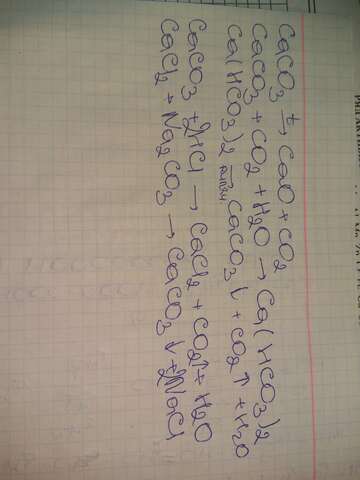 CaCO3 t→ CaO + CO2
CaCO3 + CO2 + H2O → Ca(HCO3)2
Ca(HCO3)2 → CaCO3↓ + CO2↑ + H2O
CaCO3 + 2HCl → CaCl2 + CO2↑ + H2O
CaCl2 + Na2CO3 → CaCO3↓ + 2NaCl